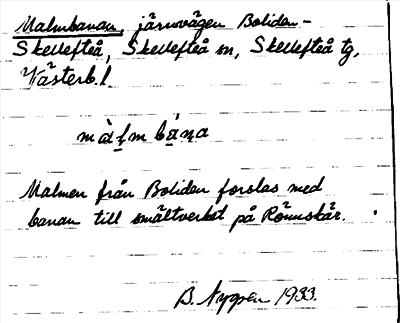 Malmbanan, järnvägen Boliden–
Skellefteå, Skellefteå sn, Skellefteå tg,
Västerb.l.
màl̥m bána
Malmen från Boliden forslas med
banan till smältverket på Rönnskär.
B. Nygren 1933.